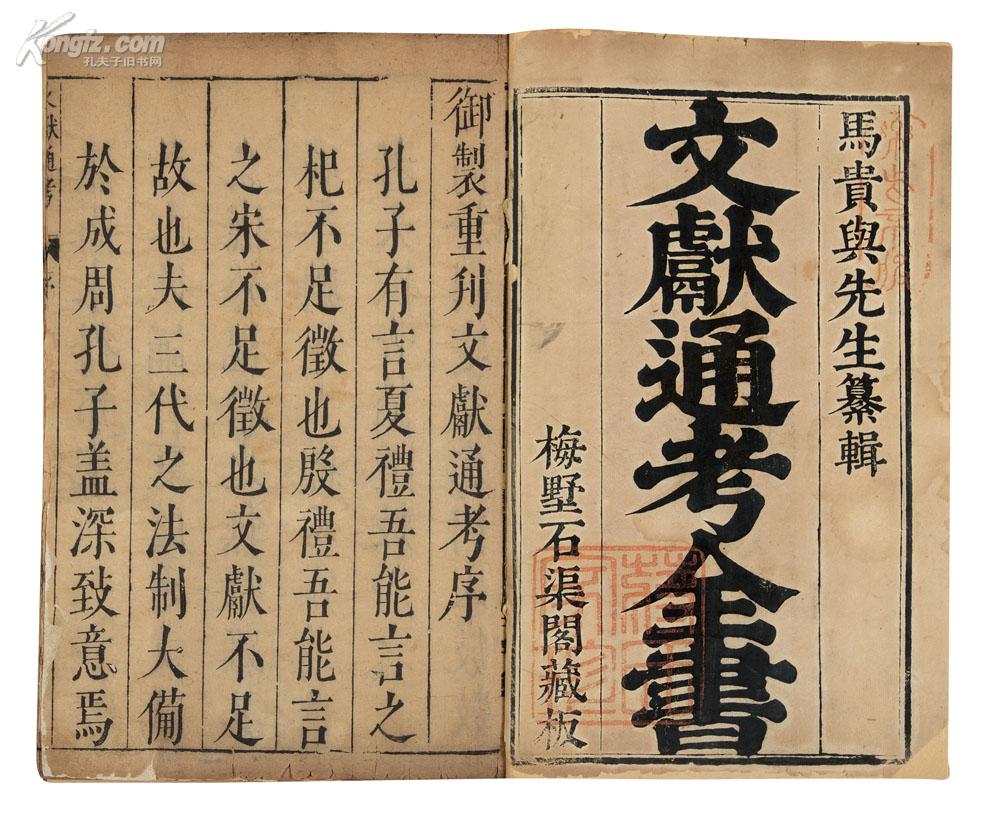 馬貴與先生纂輯
文獻通考全書
梅墅石渠閣藏板
御製重刋文獻通考序
孔子有言夏禮吾能言之
杞不足徵也殷禮吾能言
之宋不足徵也文獻不足
故也夫三代之法制大備
於成周孔子盖深致意焉
文獻通考
序
Kongfz.com
孔夫子旧书网